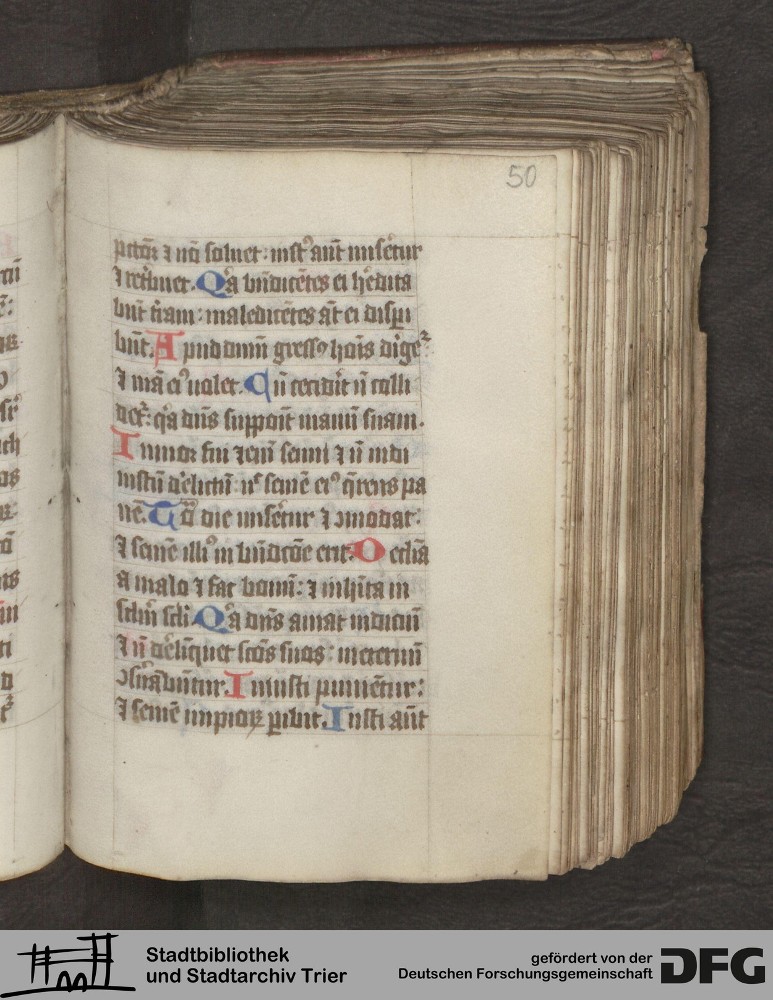 50
pcc̄tor ⁊ nō soluet : iust᷒ aūt misēetur
⁊ retͥbuet. Qͥa bn̄dicētes ei hēdita
būt trām : maledicētes āt ei dispi
būt. Apud dnm̄ gress᷒ hoīs dͥiget᷒
⁊ uiā ei᷒ uolet. Cū cecidit̄ nō colli
det᷒ : qͥa dn̄s suppoīt manū suam.
Iunior fui ⁊ enī senui ⁊ nō uidi
iustū dēlictū : nᶜ semē ei᷒ q̄rens pa
nē. Tota die misēetur ⁊ ꝯmodat :
⁊ semē illi᷒ in bn̄dictōe erit. Declīa
a malo ⁊ fac bonū : ⁊ inhīta in
sclm̄ scli. Qͥa dn̄s amat iudiciū
⁊ nō dēliquet scōs suos : in eternū
ꝯsērͣbūtur. Iniusti puniētur :
⁊ semē impioꝝ ꝑibit. Iusti aūt
Stadtbibliothek
und Stadtarchiv Trier
gefördert von der
Deutschen Forschungsgemeinschaft
DFG